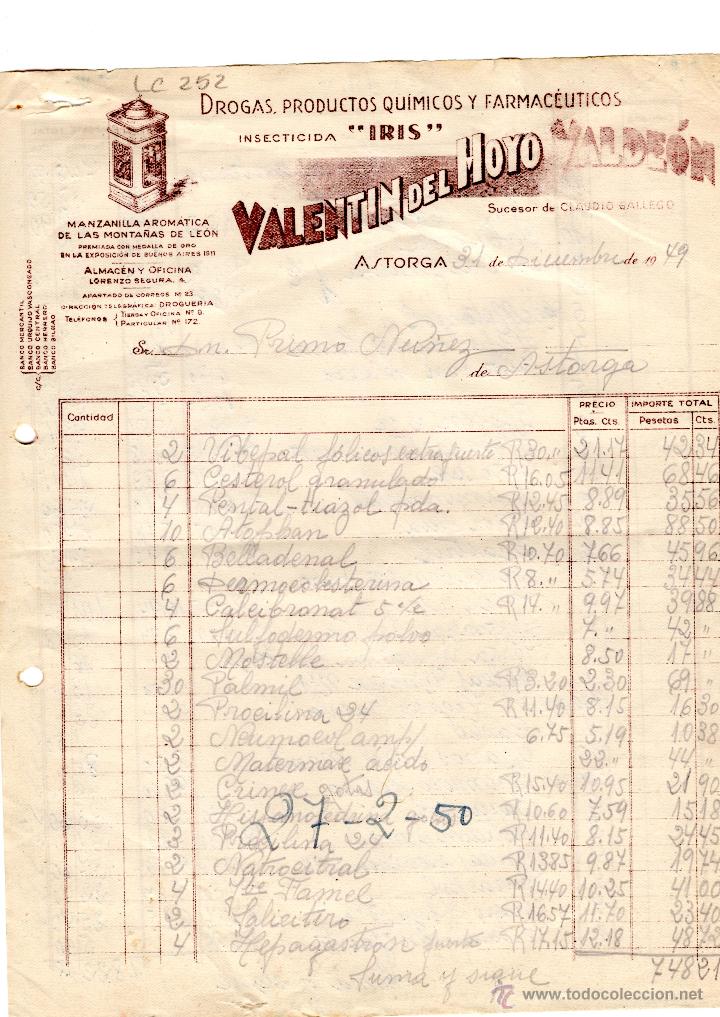 LC 252
DROGAS, PRODUCTOS QUÍMICOS Y FARMACÉUTICOS
INSECTICIDA "IRIS"
VALENTIN DEL HOYO VALDEÓN
Sucesor de CLAUDIO GALLEGO
MANZANILLA AROMATICA
DE LAS MONTAÑAS DE LEÓN
PREMIADA CON MEDALLA DE ORO
EN LA EXPOSICIÓN DE BUENOS AIRES 1911
ALMACÉN Y OFICINA
LORENZO SEGURA, 4.
APARTADO DE CORREOS Nº 23
DIRECCIÓN TELEGRÁFICA: DROGUERIA
TELÉFONOS TIENDA Y OFICINA Nº 8.
PARTICULAR Nº 172.
C/C. BANCO MERCANTIL
BANCO URQUIJO VASCONGADO
BANCO CENTRAL
BANCO HERRERO
BANCO BILBAO
ASTORGA 31 de Diciembre de 1949
Sr. Dn. Primo Nuñez
de Astorga
Cantidad PRECIO IMPORTE TOTAL
Ptas. Cts. Pesetas Cts.
2 Vibepal fólicos extrafuerte R 30,, 21.17 42 34
6 Cesterol granulado R 16.05 11.41 68 46
4 Pental-tiazol pda. R 12.45 8.89 35 56
10 Atophan R 12.40 8.85 88 50
6 Belladenal R 10.70 7.66 45 96
6 Dermocolesterina R 8. ,, 5.74 34 44
4 Calcibronat R 14. ,, 9.97 39 88
6 Sulfodermo polvo 7. ,, 42 ,,
2 Mostelle 8.50 17 ,,
30 Palmil R 3.20 2.30 69 ,,
2 Procilina 24 R 11.40 8.15 16 30
2 Neumocol amp/ 6.75 5.19 10 38
2 Matermax acido 22. ,, 44 ,,
2 Crinex gotas R 15.40 10.95 21 90
2 R 10.60 7.59 15 18
3 Procilina 24 R 11.40 8.15 24 45
2 Natrocitral R 13.85 9.87 19 74
4 Jbe Famel R 14.40 10.25 41 00
2 R 16.57 11.70 23 40
4 Hepagastron fuerte R 17.15 12.18 48 72
27-2-50
Suma y sigue 748 21
www.todocoleccion.net